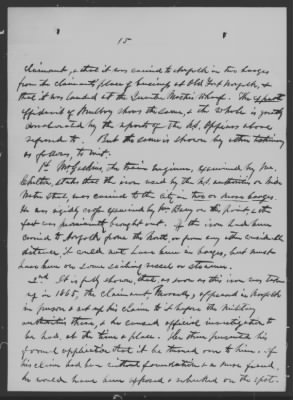 15
claimant, & that it was carried to Norfolk in two barges
from the claimant's place of business at Old Fort Norfolk, &
that it was landed at the Quarter Master's Wharf. The
affidavit of shows the same, & the whole is
corroborated by the reports of the U.S. Officers above
referred to. But the same is shown by other testimony
as follows, to wit.
1st. Mr the train Engineer, examined by Mr.
Chilton, states that the iron used by the U.S. authorities on
was carried to the city in two or more barges.
He was rigidly by Mr on this point, & the
fact was brought out. If the iron had been
carried to Norfolk from the North, or from any other considerable
distance, it would not have been in barges, but must
have been in some sailing vessel or steamer.
2nd It is fully shown, that as soon as this iron was taken
up in 1865, the claimant, appeared in Norfolk
in person & set up his claim to it before the Military
authorities there, & he caused official investigation to
be had, at the time & place. He then presented his
formal application that it be turned over to him. If
his claim had been without foundation & a mere fraud,
he would have been exposed & rebuked on the spot.